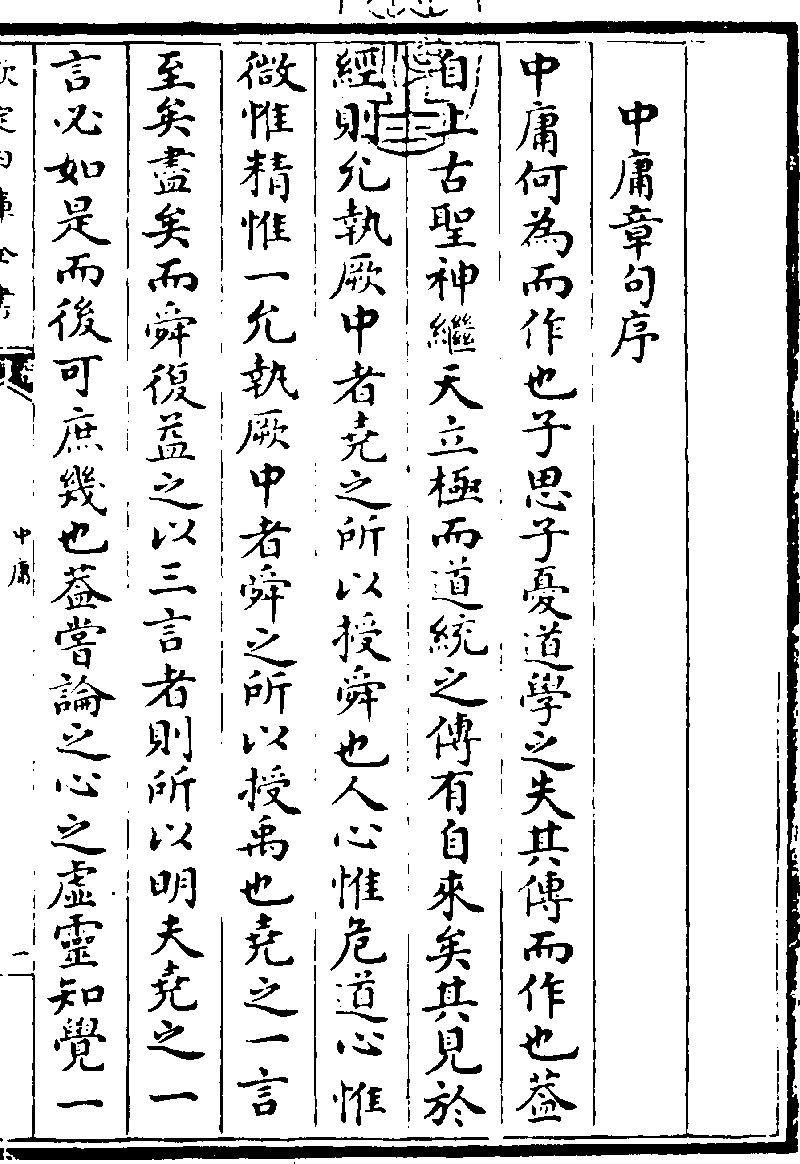 中庸章句序
中庸何為而作也子思子憂道學之失其傳而作也葢
自上古聖神繼天立極而道統之傳有自來矣其見於
經則允執厥中者堯之所以授舜也人心惟危道心惟
微惟精惟一允執厥中者舜之所以授禹也堯之一言
至矣盡矣而舜復益之以三言者則所以明夫堯之一
言必如是而後可庶幾也葢嘗論之心之虛靈知覺一
中庸
一